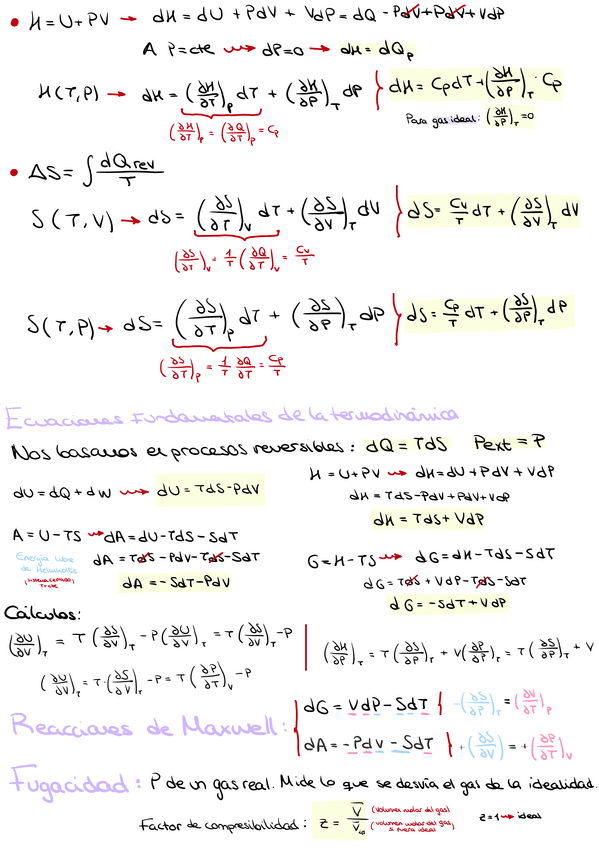 • H = U + PV → dH = dU + PdV + VdP = dQ - PdV + PdV + VdP
A P = cte ⇝ dP = 0 → dH = dQp
H(T,P) → dH = (∂H/∂T)_P dT + (∂H/∂P)_T dP } dH = CpdT + (∂H/∂P)_T · Cp
(∂H/∂T)_P = (∂Q/∂T)_P = Cp
Para gas ideal: (∂H/∂P)_T = 0
• ΔS = ∫ dQrev/T
S(T,V) → dS = (∂S/∂T)_V dT + (∂S/∂V)_T dV } dS = Cv/T dT + (∂S/∂V)_T dV
(∂S/∂T)_V = 1/T (∂Q/∂T)_V = Cv/T
S(T,P) → dS = (∂S/∂T)_P dT + (∂S/∂P)_T dP } dS = Cp/T dT + (∂S/∂P)_T dP
(∂S/∂T)_P = 1/T ∂Q/∂T = Cp/T
Ecuaciones Fundamentales de la termodinámica
Nos basamos en procesos reversibles: dQ = TdS Pext = P
dU = dQ + dW ⇝ dU = TdS - PdV
H = U + PV ⇝ dH = dU + PdV + VdP
dH = TdS - PdV + PdV + VdP
dH = TdS + VdP
A = U - TS ⇝ dA = dU - TdS - SdT
Energía libre de Helmholtz
(sistema cerrado) T cte
dA = TdS - PdV - TdS - SdT
dA = -SdT - PdV
G = H - TS ⇝ dG = dH - TdS - SdT
dG = TdS + VdP - TdS - SdT
dG = -SdT + VdP
Cálculos:
(∂U/∂V)_T = T (∂S/∂V)_T - P (∂U/∂V)_T = T (∂S/∂V)_T - P
(∂U/∂V)_T = T · (∂S/∂V)_T - P = T (∂P/∂T)_V - P
(∂H/∂P)_T = T (∂S/∂P)_T + V (∂P/∂P)_T = T (∂S/∂P)_T + V
Reacciones de Maxwell:
dG = VdP - SdT | -(∂S/∂P)_T = (∂V/∂T)_P
dA = -PdV - SdT | +(∂S/∂V) = +(∂P/∂T)_V
Fugacidad: P de un gas real. Mide lo que se desvía el gas de la idealidad.
Factor de compresibilidad: z = V̄ (volumen molar del gas) / V̄ (volumen molar del gas si fuera ideal) z = 1 ⇝ ideal